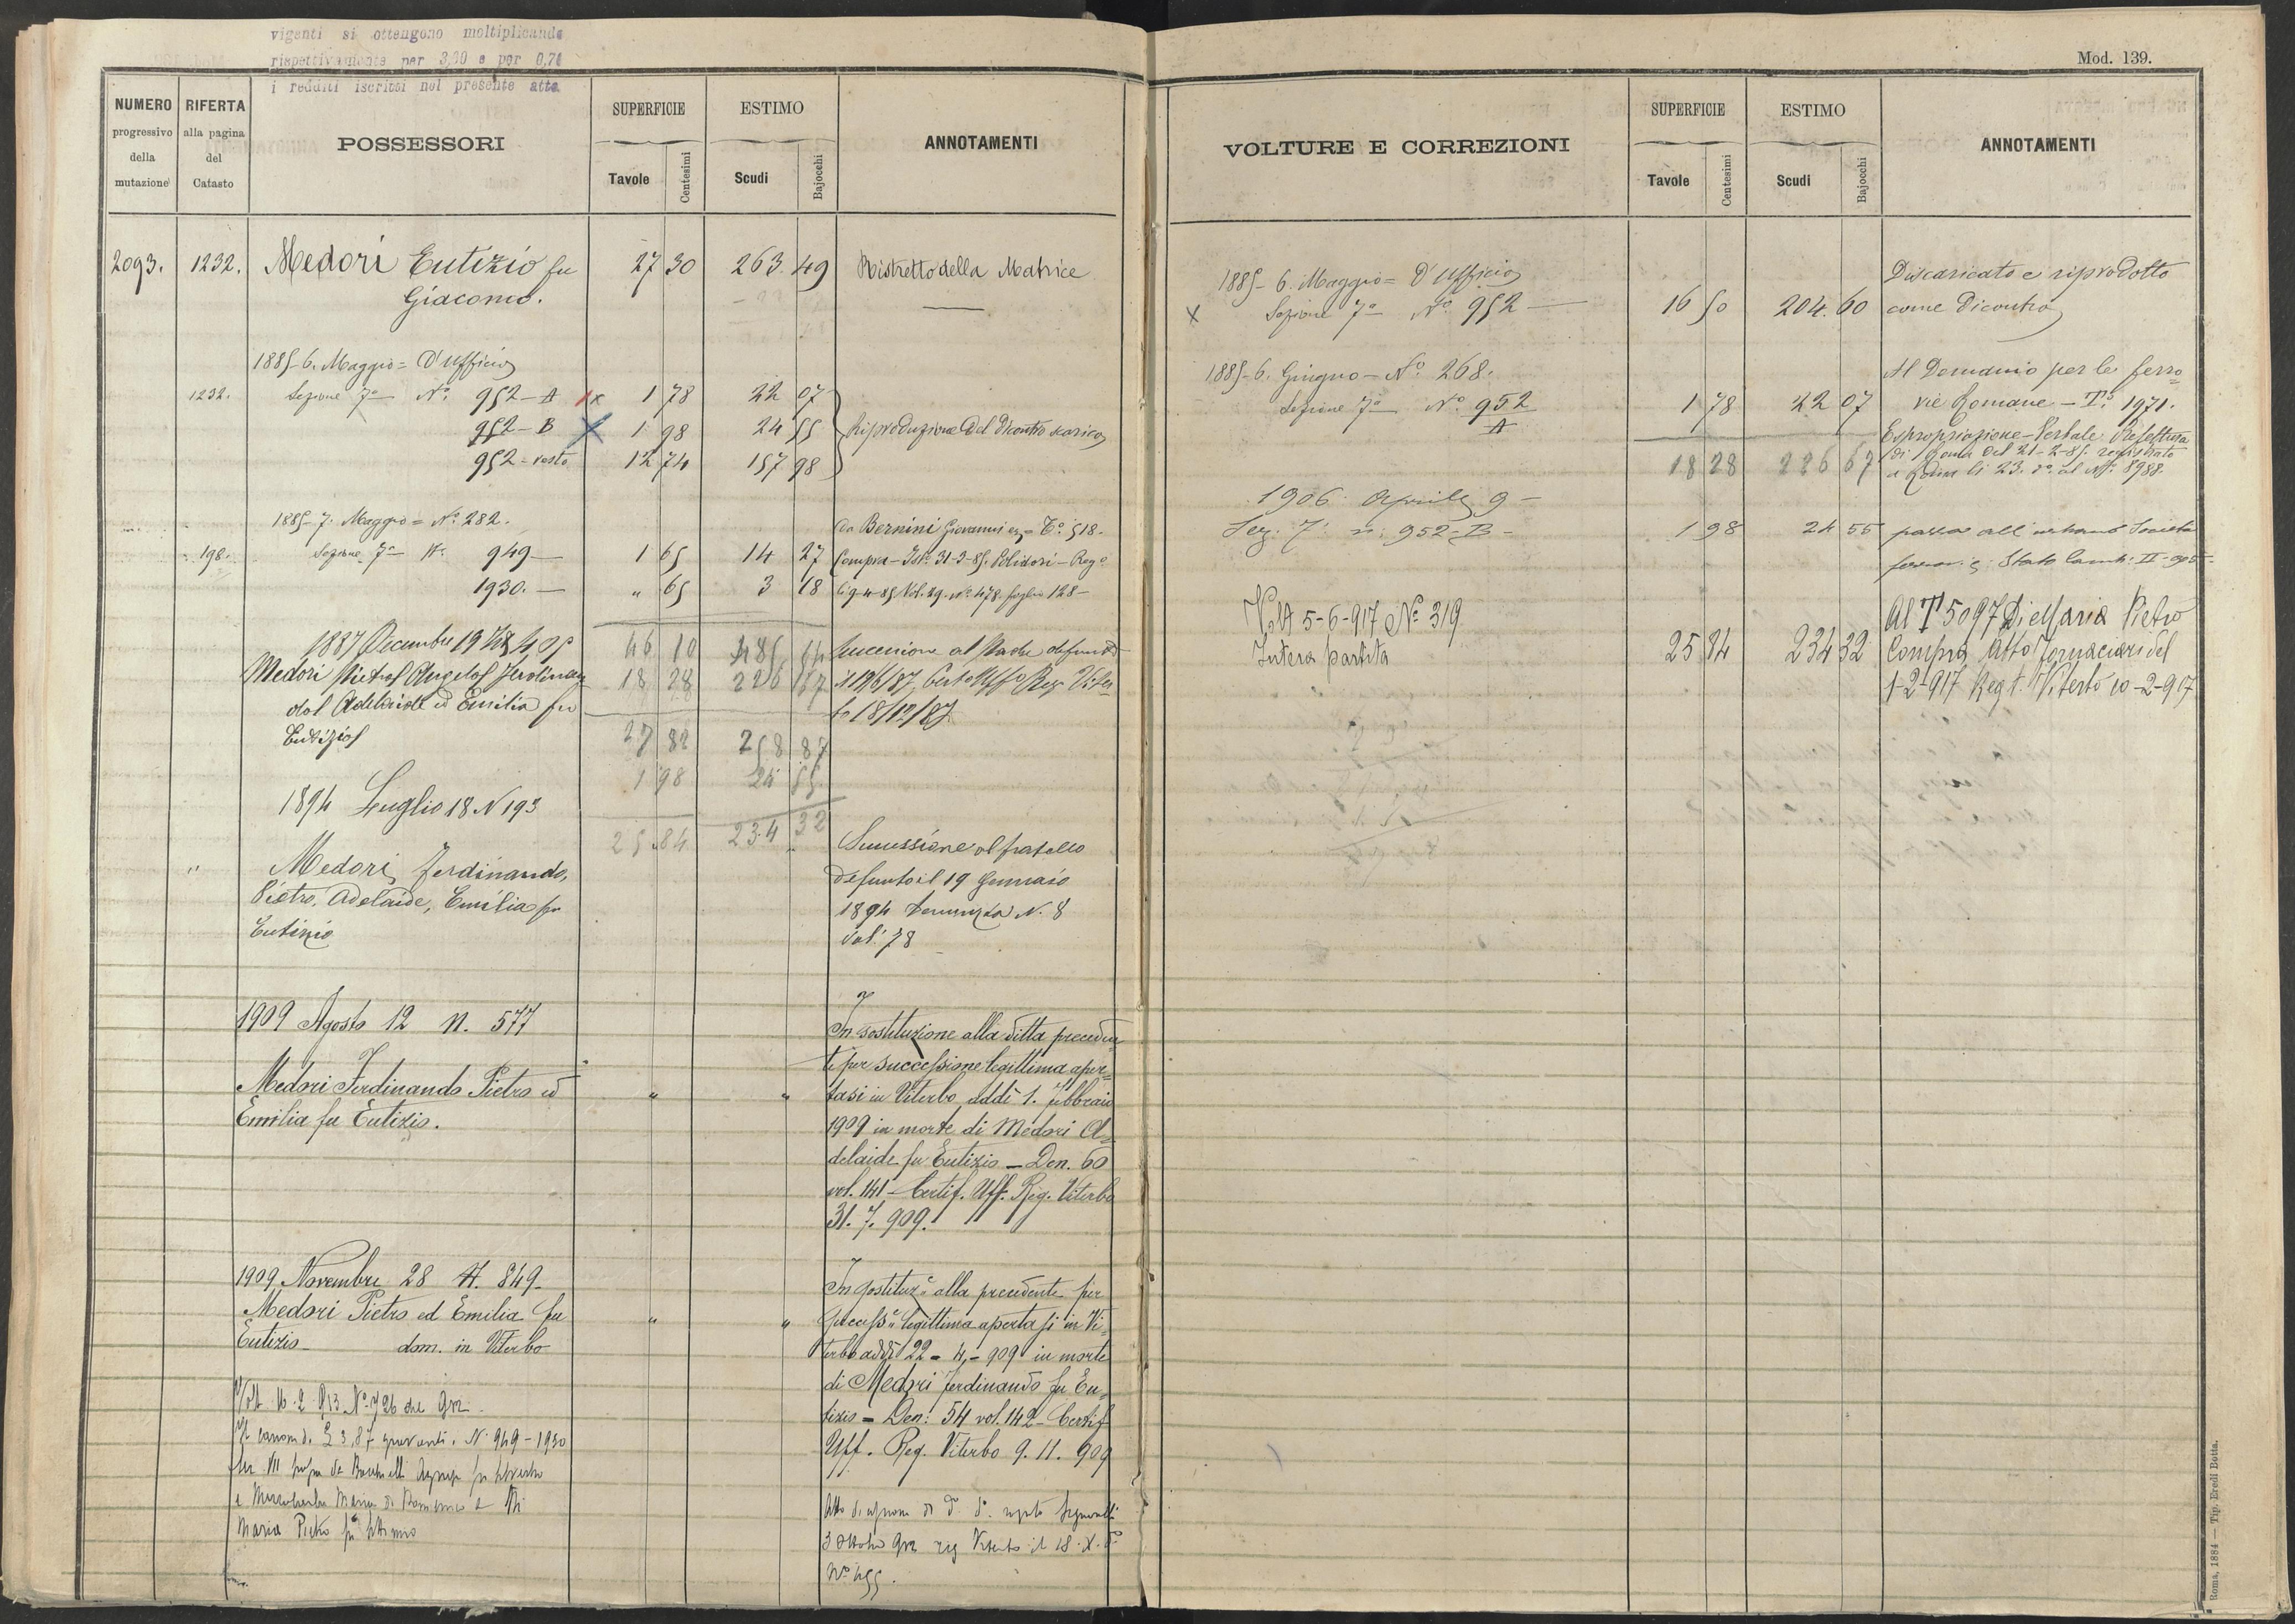 vigenti si ottengono moltiplicando
rispettivamente per 3,30 e per 0,71
i redditi iscritti nel presente atto
NUMERO
progressivo
della
mutazione
RIFERTA
alla pagina
del
Catasto
POSSESSORI
SUPERFICIE
Tavole
Centesimi
ESTIMO
Scudi
Bajocchi
ANNOTAMENTI
2093. 1232. Medori Eutizio fu 27 30 263. 49 Ristretto della Matrice
Giacomo.
1885-6. Maggio = D'Ufficio
1232. Sezione 7a No. 952-A 1 78 22 07
952-B 1 98 24 55 Riproduzione del Dicontro scarico
952=resto 12 74 157 98
1885-7. Maggio = No. 282. da Bernini Giovanni = To. 518.
198. Sezione 7a No. 949 1 65 14 27 Compra - 31-3-85. Polidori - Rego
1930. " 65 3 18 li 9-4-85 Vol. 29. No. 478 foglio 128-
1887 Decembre 19 46 10 485 54 Successione al Padre defunto
Medori Pietro Angelo Ferdinan 18 28 226 67
do Adelaide ed Emilia fu 18/12/87
Eutizio 27 82 258 87
1 98 24 55
1894 Luglio 18 N 193
25.84 234 32
" Medori Ferdinando, Successione al fratello
Pietro, Adelaide, Emilia fu defunto il 19 Gennaio
Eutizio 1894 Denunzia N. 8
Vol. 78
1909 Agosto 12 N. 577 In sostituzione alla ditta preceden
te per successione legittima aper=
Medori Ferdinando Pietro ed " " tasi in Viterbo addì 1. febbraio
Emilia fu Eutizio. 1909 in morte di Medori A=
delaide fu Eutizio - Den. 60
vol. 141 - Certif. Uff. Reg. Viterbo
31. 7. 909.
1909 Novembre 28 N. 849- In sostituz. alla precedente per
Medori Pietro ed Emilia fu " " success. legittima apertasi in Vi=
Eutizio- dom. in Viterbo terbo addì 22 = 4 = 909 in morte
di Medori Ferdinando fu Eu=
tizio = Den: 54 vol. 142 - Certif
Uff. Reg. Viterbo 9. 11. 909
Volt 16.2 913 No. 726 del 912
L 3,87 N. 949 - 1930
Sez VII
Maria Pietro fu
Atto di
3 Ottobre 912 reg Viterbo il 18.X.
No 455.
Mod. 139.
VOLTURE E CORREZIONI
SUPERFICIE
Tavole
Centesimi
ESTIMO
Scudi
Bajocchi
ANNOTAMENTI
1885-6. Maggio = D'Ufficio Discaricato e riprodotto
x Sezione 7a No. 952 16 50 204. 60 come Dicontro
1885-6. Giugno - No. 268. Al Demanio per le ferro=
Sezione 7a No. 952 1 78 22 07 vie Romane - To. 1971.
A Espropriazione - Prefettura
18 28 226 67 di Roma del 21-2-85. registrato
a Roma li 23. do. al No. 8988.
1906. Aprile 9 -
Sez. 7: n: 952-B- 1 98 24 55 passa all'urbano
Stato II - 905
Volt 5-6-917 No 319 Al T 5097 Di Maria Pietro
Intera partita 25 84 234 32 Compra Atto Fornaciari del
1-2-917 Reg t. Viterbo 10-2-917
Roma, 1884 — Tip. Eredi Botta.